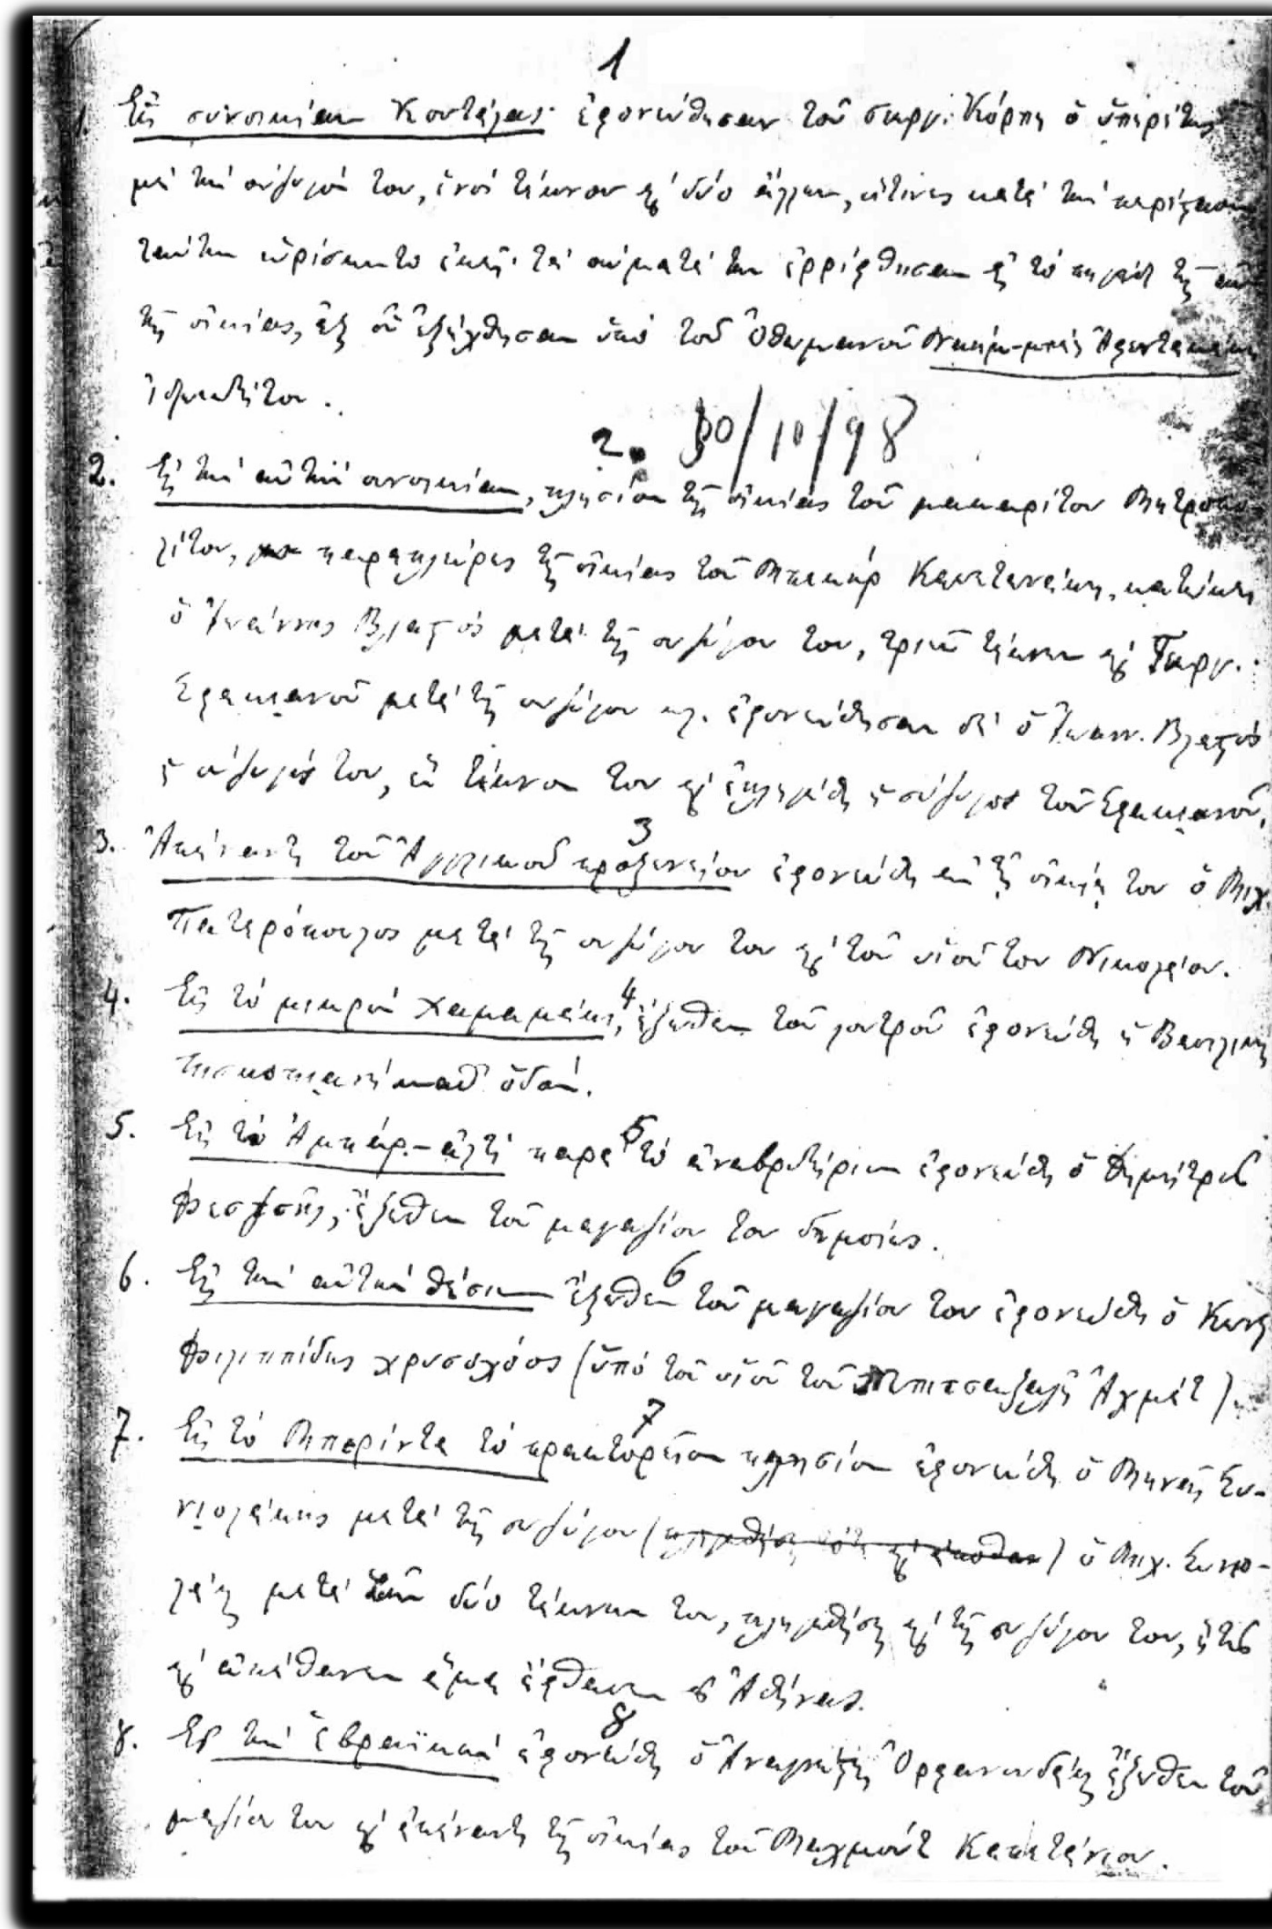 1
1. Εἰς συνοικίαν Κουτάλας· ἐφονεύθησαν τοῦ Γεωργ. Κόρπη ὁ ὑπηρέτης
μὲ τὴν σύζυγόν του, ἑνὸς τέκνου κ' δύο ἄλλων, οἵτινες κατὰ τὴν περίστασιν
ταύτην εὑρίσκοντο ἐκεῖ· τὰ σώματά των ἐρρίφθησαν εἰς τὸ πηγάδι τῆς
τῆς οἰκίας, ἐξ οὗ ἐξήχθησαν ὑπὸ τοῦ Ὀθωμανοῦ
2. 30/10/98
2. Εἰς τὴν αὐτὴν συνοικίαν, πλησίον τῆς οἰκίας τοῦ μακαρίτου Μητροπο-
λίτου, παραπλεύρως τῆς οἰκίας τοῦ Μπεκὴρ Καπετανάκη, κατῴκει
ὁ Ἰωάννης Βλατός μετὰ τῆς συζύγου του, τριῶν τέκνων κ' Γεωργ.
Σφακιανοῦ μετὰ τῆς συζύγου κλ. ἐφονεύθησαν δὲ ὁ Ἰωαν. Βλατός
ἡ σύζυγός του, ἓν τέκνον του κ' ἐπληγώθη ἡ σύζυγος τοῦ Σφακιανοῦ.
3
3. Ἀπέναντι τοῦ Ἀγγλικοῦ προξενείου ἐφονεύθη ἐν τῇ οἰκίᾳ του ὁ Μιχ.
Πατερόπουλος μετὰ τῆς συζύγου του κ' τοῦ υἱοῦ του Νικολάου.
4
4. Εἰς τὸ μικρὸν χαμαμάκι, ἔξωθεν τοῦ λουτροῦ ἐφονεύθη ἡ Βασιλικὴ
καθ' ὁδόν.
5
5. Εἰς τὸ Ἀμπάρ-ἀλτὶ παρὰ τὸ ἀναβρυτήριον ἐφονεύθη ὁ Δημήτριος
ἔξωθεν τοῦ μαγαζίου του δημοσίως.
6
6. Εἰς τὴν αὐτὴν θέσιν ἔξωθεν τοῦ μαγαζίου του ἐφονεύθη ὁ Κωνστ
Φιλιππίδης χρυσοχόος (ὑπὸ τοῦ υἱοῦ τοῦ Ἀχμέτ).
7
7. Εἰς τὸ Μπεντρίντα τὸ πρακτορεῖον πλησίον ἐφονεύθη ὁ Μηνᾶς
μετὰ τῆς συζύγου ( ) ὁ Μιχ.
μετὰ τῶν δύο τέκνων του, πληγωθείσης κ' τῆς συζύγου του, ἥτις
κ' ἀπέθανεν ἅμα ἔφθασεν εἰς Ἀθήνας.
8
8. Εἰς τὴν ἑβραϊκὴν ἐφονεύθη ὁ Ἀναγνώστης Ὀρφανουδάκης ἔξωθεν τοῦ
μαγαζίου του κ' ἀπέναντι τῆς οἰκίας τοῦ Μαχμοὺτ Καπετάνιου.